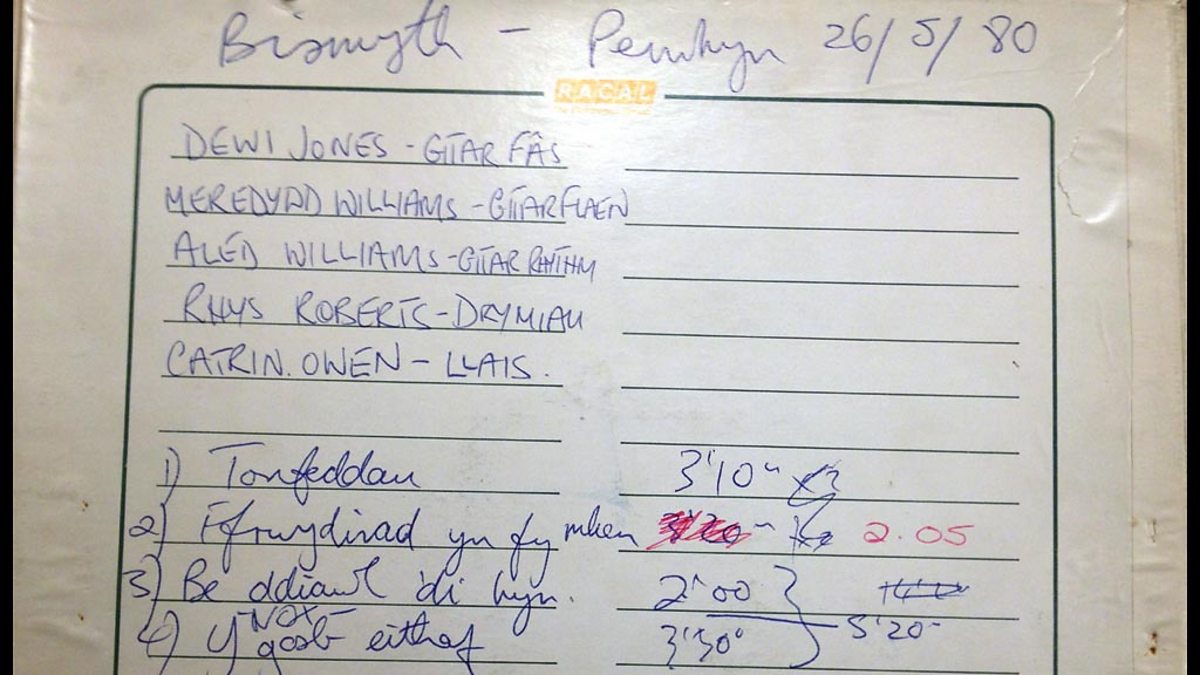 Bismyth - Penrhyn 26/5/80
RACAL
DEWI JONES - GITAR FÂS
MEREDYDD WILLIAMS - GITAR FLAEN
ALED WILLIAMS - GITAR RHITHM
RHYS ROBERTS - DRYMIAU
CATRIN. OWEN - LLAIS.
1) Tonfeddau 3'10"
2) Ffrwydriad yn fy mhen 2.05
3) Be ddiawl 'di hyn. 2'00
4) Y gosb eithaf 3'30"
5'20"